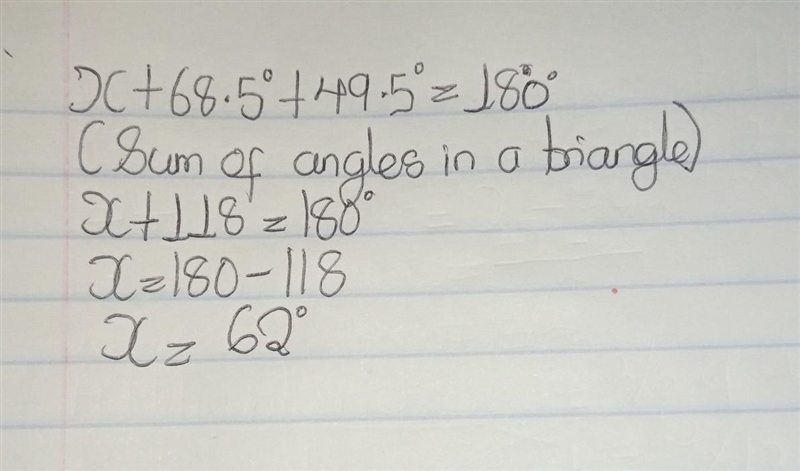 x+68.5°+49.5°=180°
(Sum of angles in a triangle)
x+118=180°
x=180-118
x= 62°